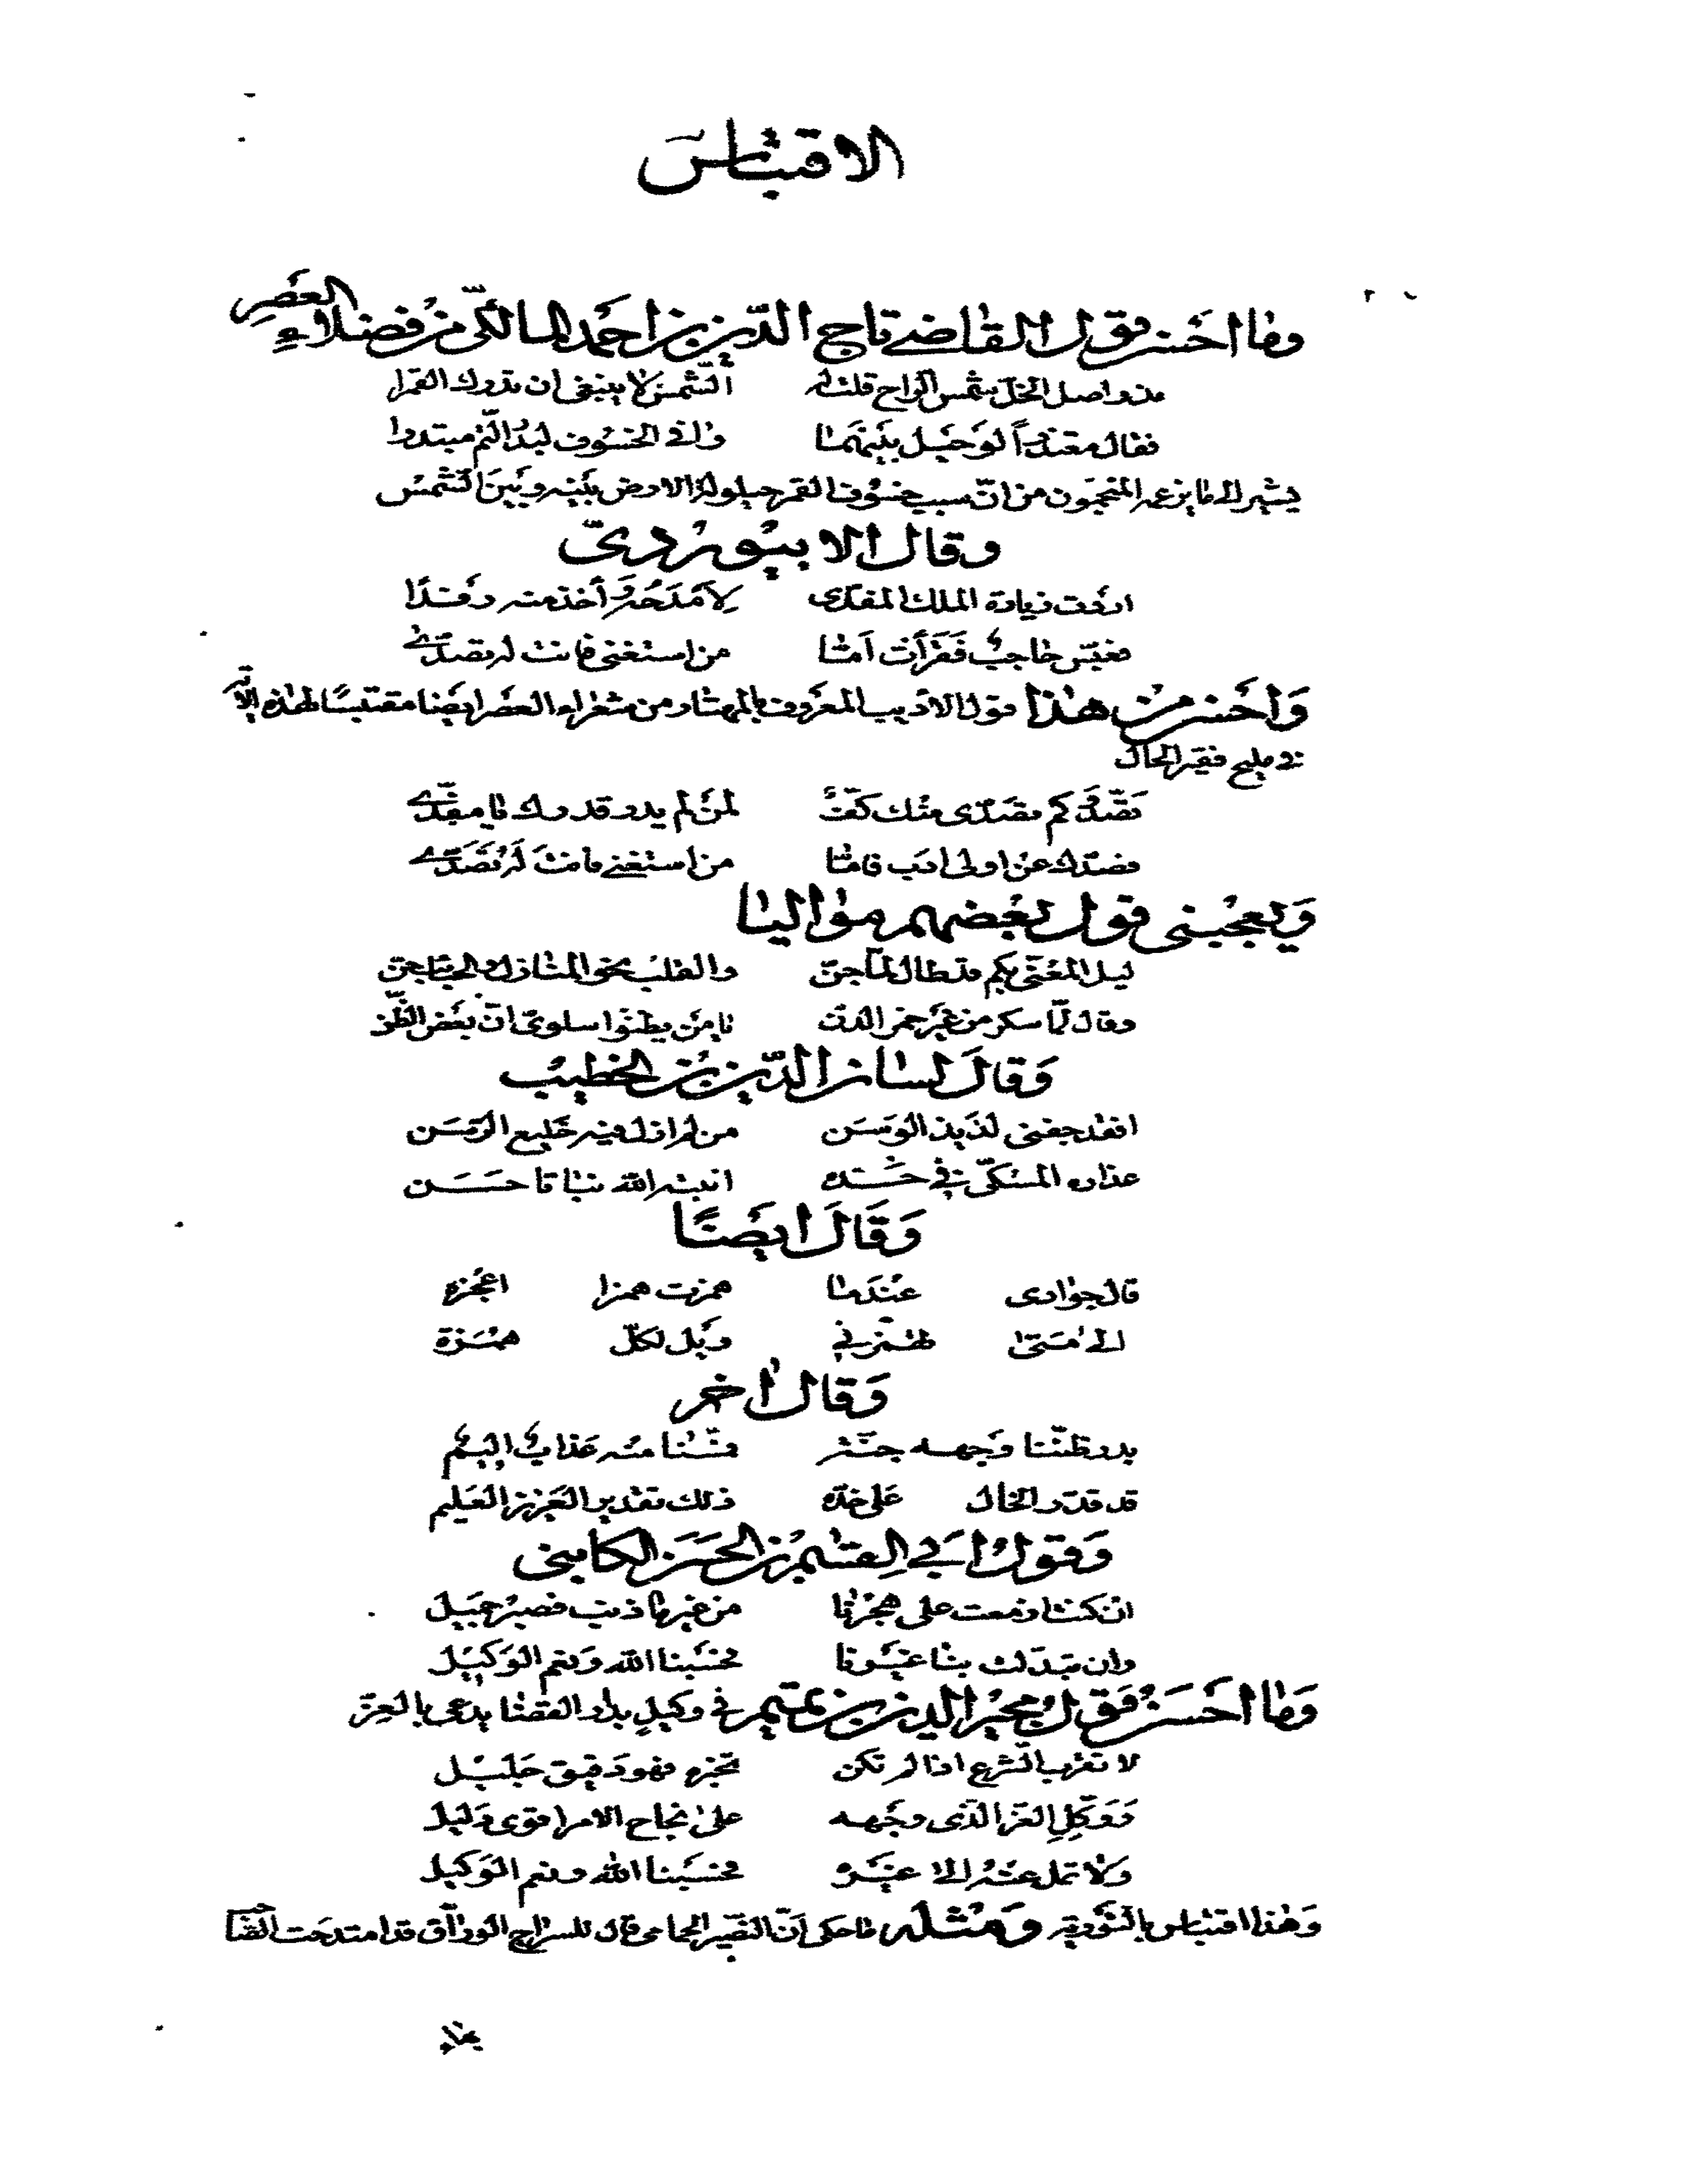 الاقتباس
وما احسن قول القاضي تاج الدين بن احمد المالكي من فضلاء العصر
مذ واصل الخل شمس الراح قلت له الشمس لا ينبغي ان تدرك القمرا
فقال معتذراً لو حيل بينهما وافى الخسوف لبدر التم مبتدرا
يشير الى ما يزعمه المنجمون من ان سبب خسوف القمر حيلولة الارض بينه وبين الشمس
وقال الابيوردي
اردت زيادة الملك المفدى لامدحه وآخذ منه رفدا
فعبس حاجب فقرأت اما من استغنى فانت له تصدى
واحسن من هذا قول الاديب المعروف بالمهتار من شعراء العصر ايضا مقتبسًا لهذه الآية
في مليح فقير الحال
تصد وكم تصدى منك كفٌ لمن لم يدر قدرك يا مفدى
فصدك عن اولى ادب فاما من استغنى فانت له تصدى
ويعجبني قول بعضهم مواليا
ليل المعنى بكم قد طال لما جن والقلب نحو المنازل والحبايب حن
وقال لما سكر من غير خمر الدن يا من يظنوا سلوى ان بعض الظن
وقال لسان الدين بن الخطيب
افقد جفني لذيذ الوسن من لم ازل فيه خليع الرسن
عذاره المسكي في خده انبته الله نباتا حسن
وقال ايضًا
قال جوادى عندما همزت همزا اعجزه
الى متى تهمزني ويل لكل همزة
وقال آخر
بدر ظننا وجهه جنة فمسنا منه عذاب اليم
قد قدر الخال على خده ذلك تقدير العزيز العليم
وقول ابي القسم بن الحسن الكاتبى
ان كنت ازمعت على هجرنا من غير ما ذنب فصبر جميل
وان تبدلت بنا غيرنا فحسبنا الله ونعم الوكيل
وما احسن قول مجير الدين بن تميم في وكيل بدار القضا يدعى بالعز
لا تقرب الشرع اذا لم تكن تخبره فهو دقيق جليل
ووكل العز الذى وجهه على نجاح الامر اقوى دليل
ولا تمل عنه الى غيره فحسبنا الله ونعم الوكيل
وهذا اقتباس بالتورية ومثله ما حكى ان النصير الحمامى قال للسراج الوراق قد امتدحت القضا